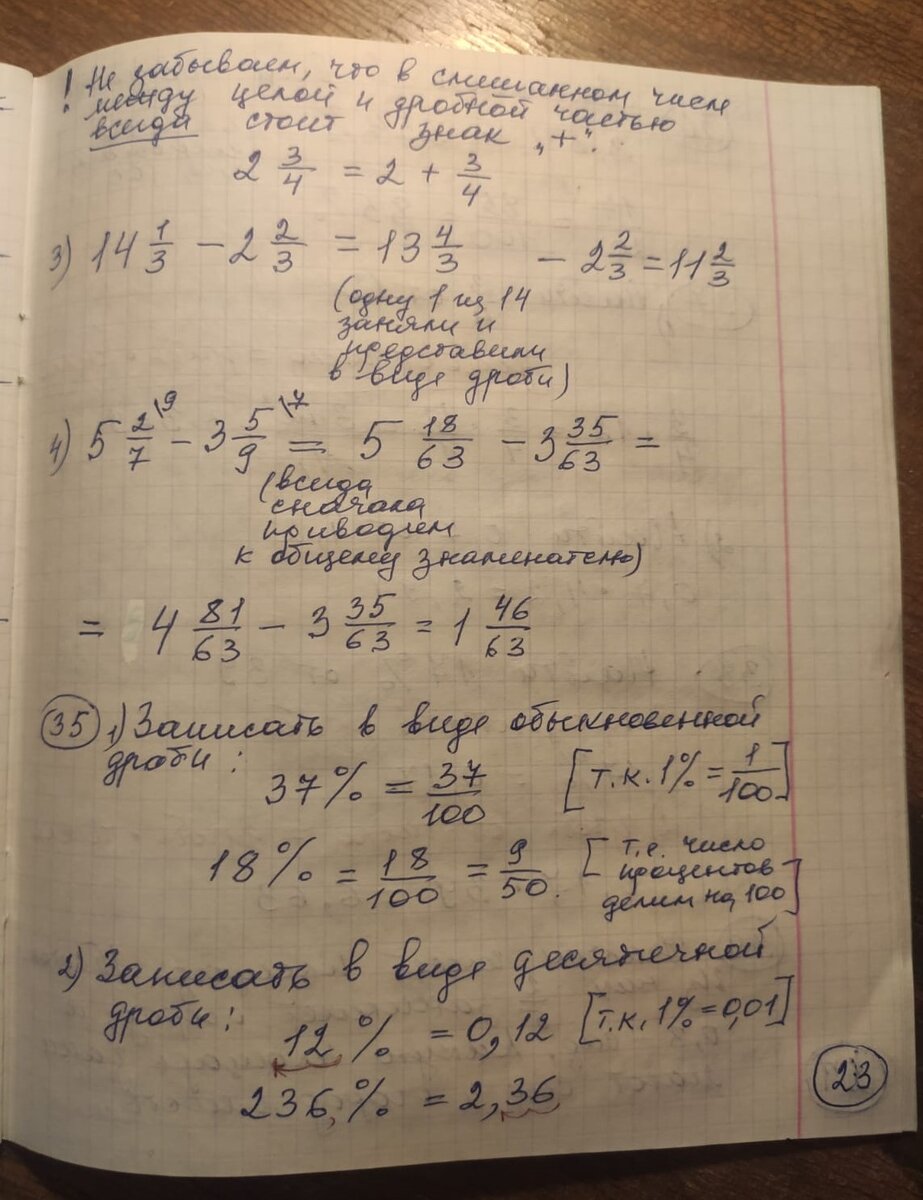 ! Не забываем, что в смешанном числе
между целой и дробной частью
всегда стоит знак „+".
2 3/4 = 2 + 3/4
3) 14 1/3 - 2 2/3 = 13 4/3 - 2 2/3 = 11 2/3
(одну 1 из 14
заняли и
представили
в виде дроби)
4) 5 2/7 \9 - 3 5/9 \7 = 5 18/63 - 3 35/63 =
(всегда
сначала
приводим
к общему знаменателю)
= 4 81/63 - 3 35/63 = 1 46/63
35 1) Записать в виде обыкновенной
дроби:
37% = 37/100 [т.к. 1% = 1/100]
18% = 18/100 = 9/50. [т.е. число
процентов
делим на 100]
2) Записать в виде десятичной
дроби:
12% = 0,12 [т.к. 1% = 0,01]
236,% = 2,36
23